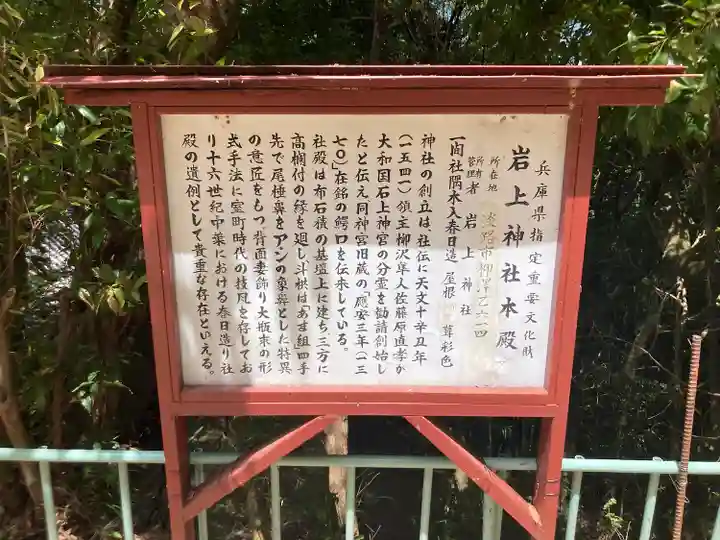 兵庫県指定重要文化財
岩上神社本殿
所在地 淡路市柳澤乙六一四
所有者
管理者 岩上神社
一間社隅木入春日造 屋根 葺彩色
神社の創立は、社伝に天文十辛丑年
(一五四一)領主柳沢隼人佐藤原直孝か
大和国石上神宮の分霊を勧請創始し
たと伝え同神宮旧蔵の「應安三年(一三
七〇)」在銘の鰐口を伝来している。
社殿は布石積の基壇上に建ち、三方に
高欄付の縁を廻し、斗栱はあま組」四手
先で尾棰鼻をアンの象鼻とした特異
の意匠をもつ背面妻飾り大瓶束の形
式手法に室町時代の技凡を存してお
り十六世紀中葉における春日造り社
殿の遺例として貴重な存在といえる。